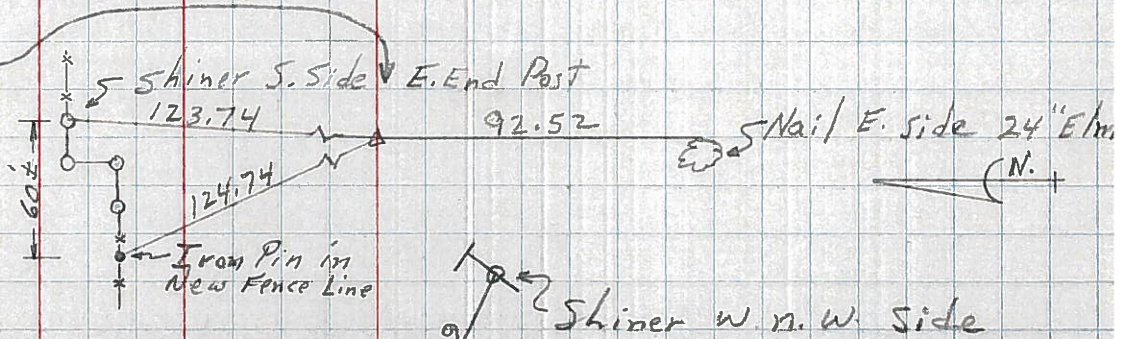 Shiner S. Side
E. End Post
123.74
92.52
Nail E. Side 24" Elm
N.
124.74
60±
Iron Pin in
New Fence Line
Shiner W.N.W. Side